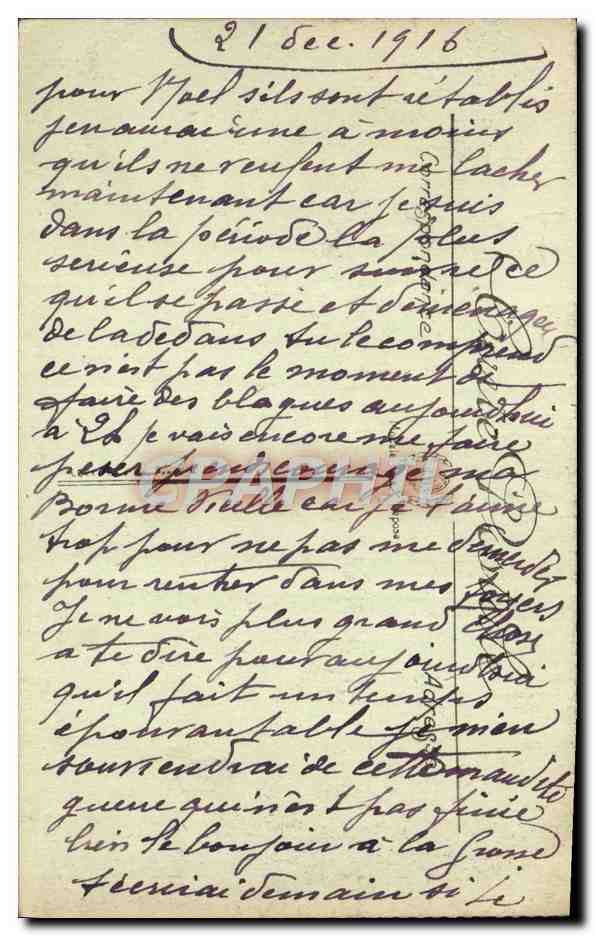 21 dec. 1916
pour Noel s'ils sont rétablis
j'en aurai une à moins
qu'ils ne reufent me lacher
maintenant car je suis
dans la période la plus
serieuse pour ce
qu'il se passe et
de la dedans tu le comprend
ce n'est pas le moment de
faire des blagues aujourd'hui
a 2h je vais encore me faire
peser courage ma
Bonne Vieille car je t'aime
trop pour ne pas me demerder
pour rentrer dans mes foyers
Je ne vois plus grand chose
a te dire pour aujourdhui
qu'il fait un temps
épouvantable je m'en
souviendrai de cette maudite
guerre qui n'est pas finie
bien le bonjour à la Grosse
t'écrirai demain si je
Carte Postale
Correspondance
Adresse
CPAPHIL